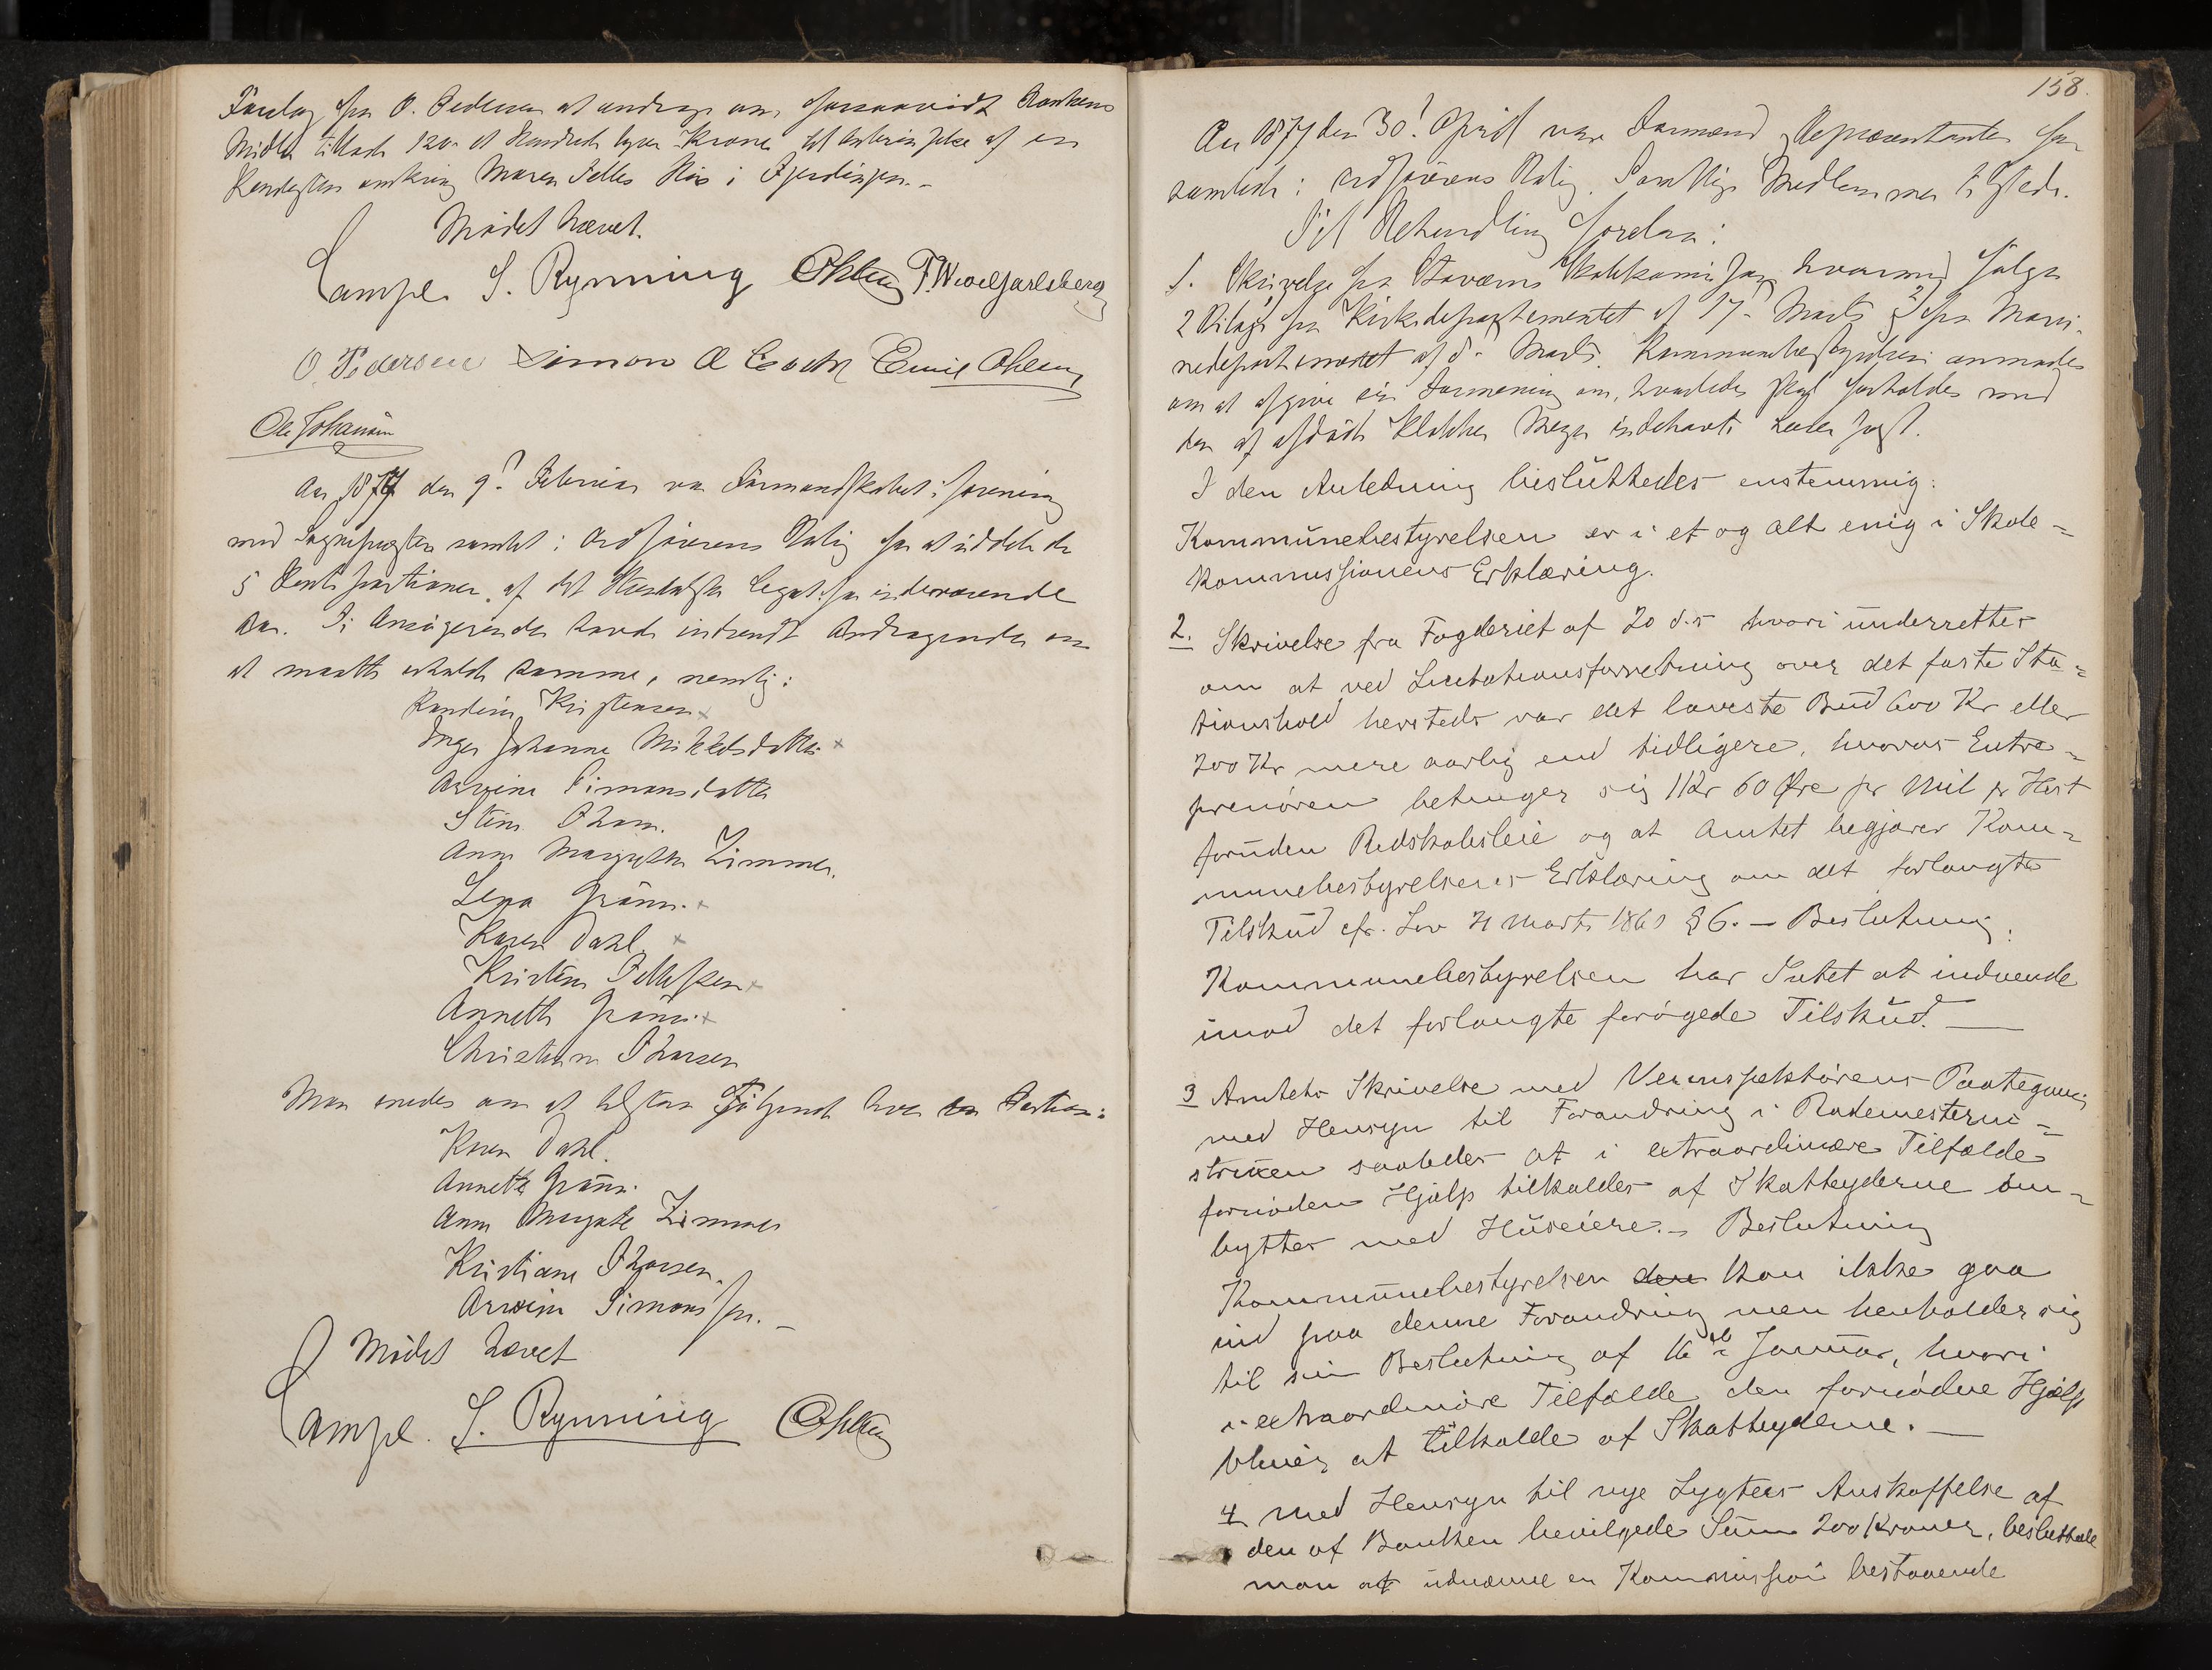 Forslag fra O. Pedersen at andrage om forsaavidt Bankens
Midler tillade 120 et Hundrede tyve Kroner til Istandsættelse af en
omkring Maren Helles Hus i
Mødet hævet.
Lampe. S. Rynning Ohlsen F. Wedel Jarlsberg
O. Pedersen Simon A Emil Ohlsen
Ole Johansen
Aar 1877 den 9. Februar var Formandskabet i forening
med Sognepræsten samlet i Ordførerens Bolig for at uddele de
5 Rente portioner af det Legat for indeværende
Aar. Ti Ansøgerinder havde indsendt Andragender om
at maatte erholde samme, nemlig:
Kristensen
Inger Johanne Mikkelsdatter
Simonsdatter
Stine Thom.
Anne Margrethe Zimmer.
Lena Grønn.
Karen Dahl.
Kristine Tellefsen
Annette Grønn.
Christiane Thorsen
Man enedes om at tilstaa Følgende hver en Portion:
Karen Dahl.
Annette Grønn.
Anne Margrete Zimmer
Kristiane Thorsen.
Simonsen.
Mødet hævet
Lampe. S. Rynning Ohlsen
158.
Aar 1877 den 30. April var Formænd og Repræsentanter for
samlede i Ordførerens Bolig. Samtlige Medlemmer tilstede.
Til Behandling forelaa:
1. Skrivelse fra Staværns Skolekommission hvormed følger
2 Bilage fra Kirkedepartementet af 17. Marts og fra Mari-
nedepartementet af 5. Marts. Kommunebestyrelsen anmodes
om at afgive sin Formening om, hvorledes skal forholdes med
den af afdøde Klokker Meyer indehavte
I den Anledning besluttedes enstemmig:
Kommunebestyrelsen er i et og alt enig i Skole=
kommissionens Erklæring.
2. Skrivelse fra Fogderiet af 20 d.s hvori underrettes
om at ved Licitationsforretning over det faste Sta=
tionshold hersteds var det laveste Bud 600 Kr eller
200 Kr mere aarlig end tidligere, hvoros Entre=
prenøren betinger sig 1 Kr 60 Øre pr Mil pr Hest
foruden Redskabsleie og at Amtet begjærer Kom=
munebestyrelsens Erklæring om det forlangte
Tilskud cfr. Lov 21 Marts 1860 § 6. — Beslutning:
Kommunebestyrelsen har Intet at indvende
imod det forlangte forøgede Tilskud. —
3 Amtets Skrivelse med Veiinspektørens Paategning
med Hensyn til Forandring i Rodemesterin=
struxen saaledes at i extraordinære Tilfælde
fornøden Hjælp tilkaldes af Skatteyderne om=
byttes med Huseiere. — Beslutning
Kommunebestyrelsen den kan ikke gaa
ind paa denne Forandring men henholder sig
til sin Beslutning af 16de Januar, hvori
i extraordinære Tilfælde den fornødne Hjælp
bliver at tilkalde af Skatteyderne. —
4 med Hensyn til nye Lygters Anskaffelse af
den af Banken bevilgede Sum 200 Kroner, besluttede
man at udnævne en Kommission bestaaende